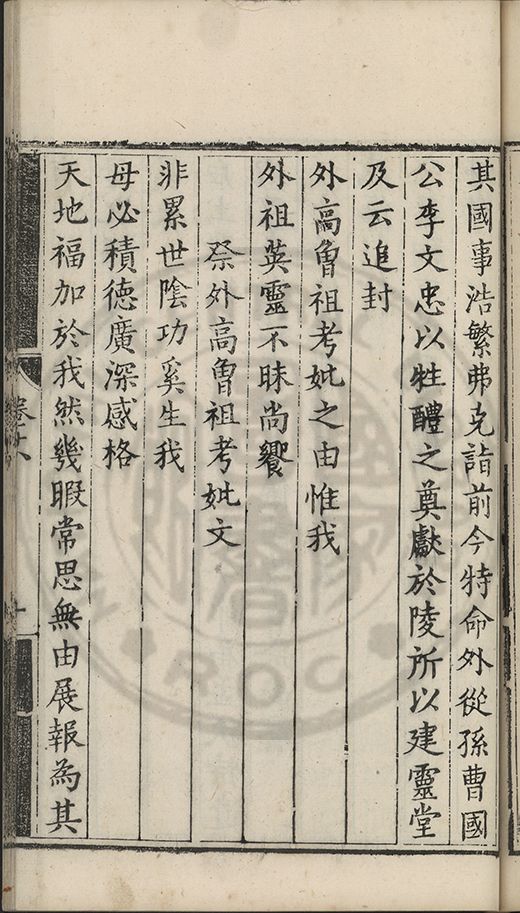 其國事浩繁弗克詣前今特命外從孫曹國
公李文忠以牲醴之奠獻於陵所以建靈堂
及云追封
外高曾祖考妣之由惟我
外祖英靈不昧尚饗
祭外高曾祖考妣文
非累世陰功奚生我
母必積德廣深感格
天地福加於我然幾暇常思無由展報為其